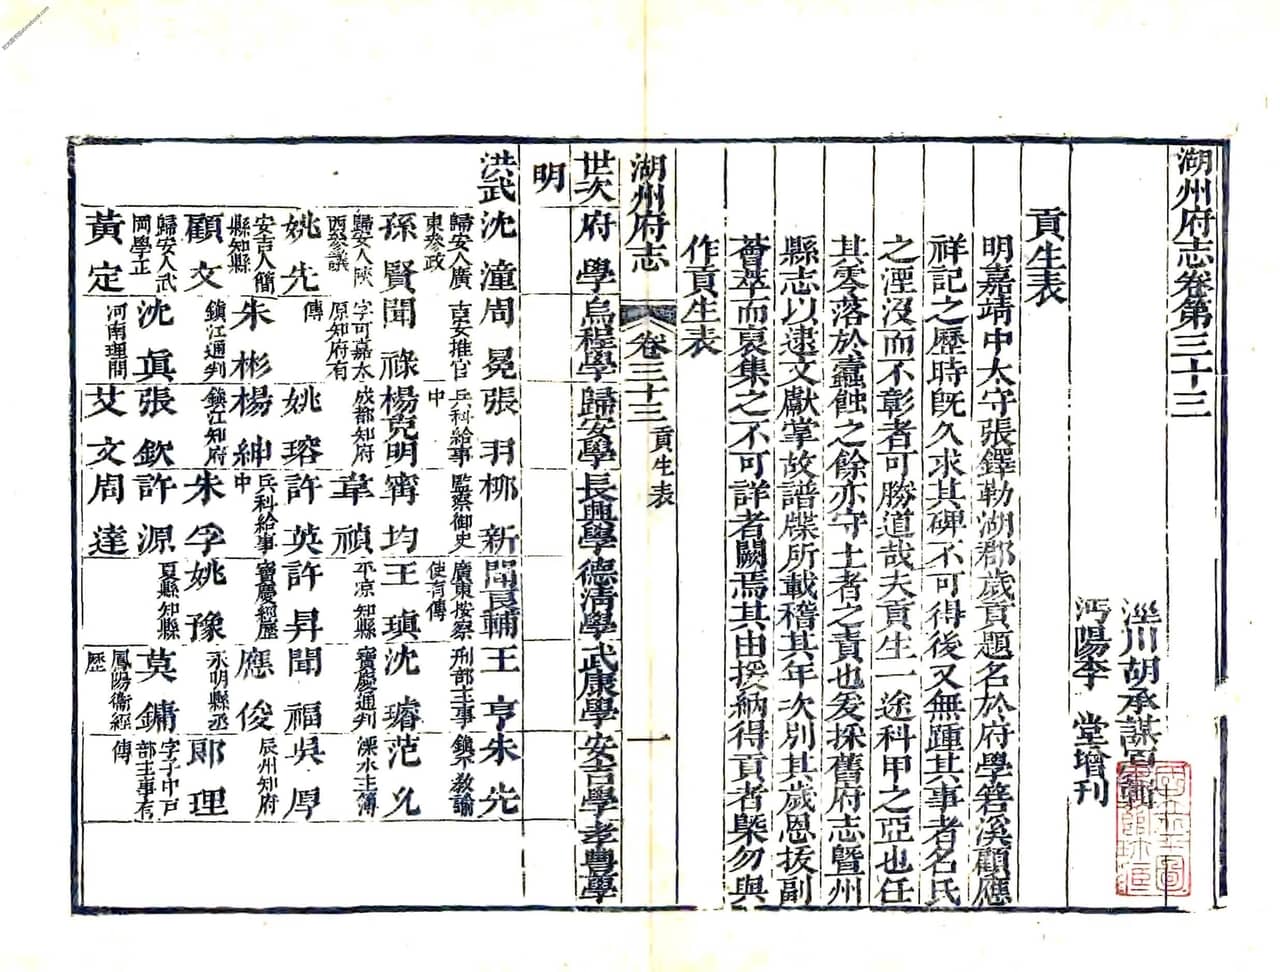 湖州府志卷第三十三
涇川胡承謀原輯
沔陽李　堂增刊
貢生表
明嘉靖中太守張鐸勒湖郡歲貢題名於府學箬溪顧應
祥記之歷時旣久求其碑不可得後又無踵其事者名氏
之湮沒而不彰者可勝道哉夫貢生一途科甲之亞也任
其零落於蠹蝕之餘亦守土者之責也爰採舊府志暨州
縣志以逮文獻掌故譜牒所載稽其年次別其歲恩拔副
薈萃而裒集之不可詳者闕焉其由援納得貢者槩勿與
作貢生表
湖州府志　卷三十三　貢生表　一
世次　府學　烏程學　歸安學　長興學　德淸學　武康學　安吉學　孝豐學
明
洪武　沈潼　周冕　張玥　柳新　閻良輔　王亨　朱光
歸安人廣東參政　吉安推官　兵科給事中　監察御史　廣東按察使有傳　刑部主事　鎮寧敎諭
孫賢　聞祿　楊克明　甯均　王瑱　沈璿　范允
歸安人陝西參議　字可嘉太原知府有傳　成都知府　韋禎　平凉知縣　寶慶通判　溧水主簿
姚先　姚瑢　許英　許昇　聞福　吳厚
安吉人簡縣知縣　朱彬　楊紳　兵科給事中　寶慶經歷　應俊　辰州知府
顧文　鎮江通判　鎮江知府　朱孚　姚豫　永明縣丞　郎理
歸安人武岡學正　沈眞　張欽　許源　夏縣知縣　莫鏞　字子中戸部主事有傳
黃定　河南理問　艾文　周達　鳳陽衞經歷